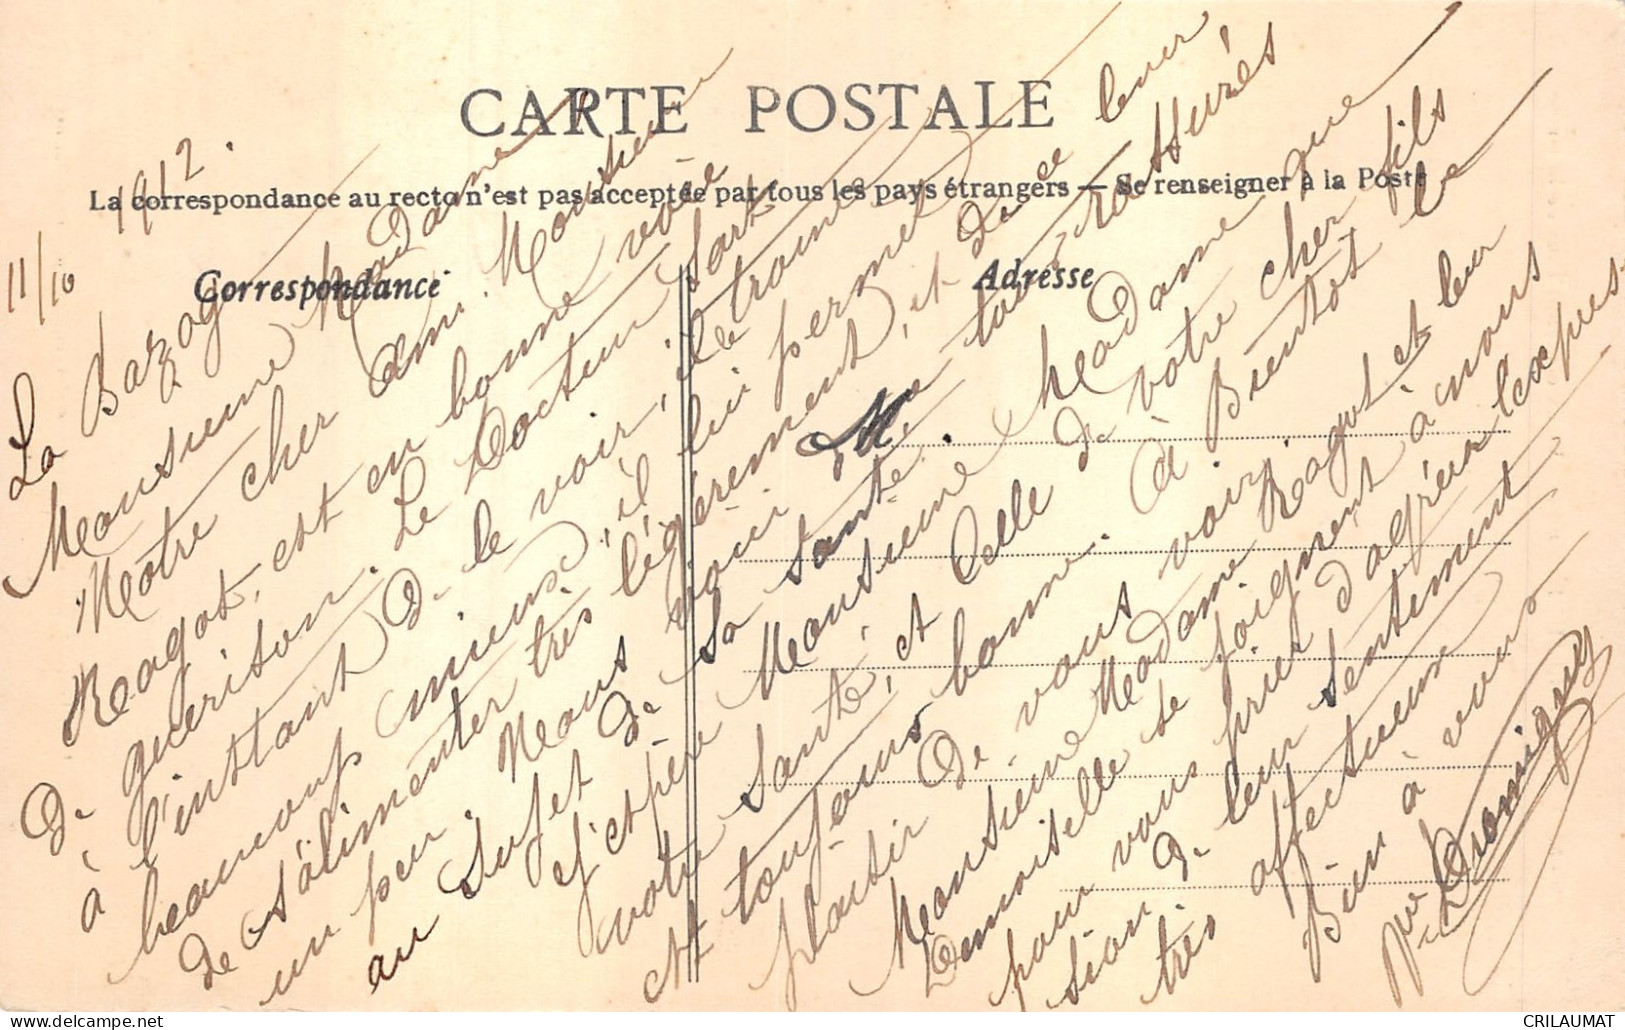 CARTE POSTALE
La correspondance au recto n'est pas acceptée par tous les pays étrangers — Se renseigner à la Poste
Correspondance
Adresse
M
La Bazoge 11/10 1912.
Monsieur Madame
Notre cher ami Monsieur
Ragot, est en bonne voie
de guérison. Le Docteur sort
à l'instant de le voir, il le trouve
beaucoup mieux, il lui permet
de s'alimenter très légèrement, et de ce
un peu. Nous
au sujet de sa santé. rassurés
J'espère Monsieur Madame que
votre santé, et celle de votre cher fils
est toujours bonne. à Bientot le
plaisir de vous voir.
Monsieur Madame Ragot et leur
Demoiselle se joignent à nous
pour vous prier d'agréer l'expres-
sion de leur sentiment
très affectueux
Bien à vous